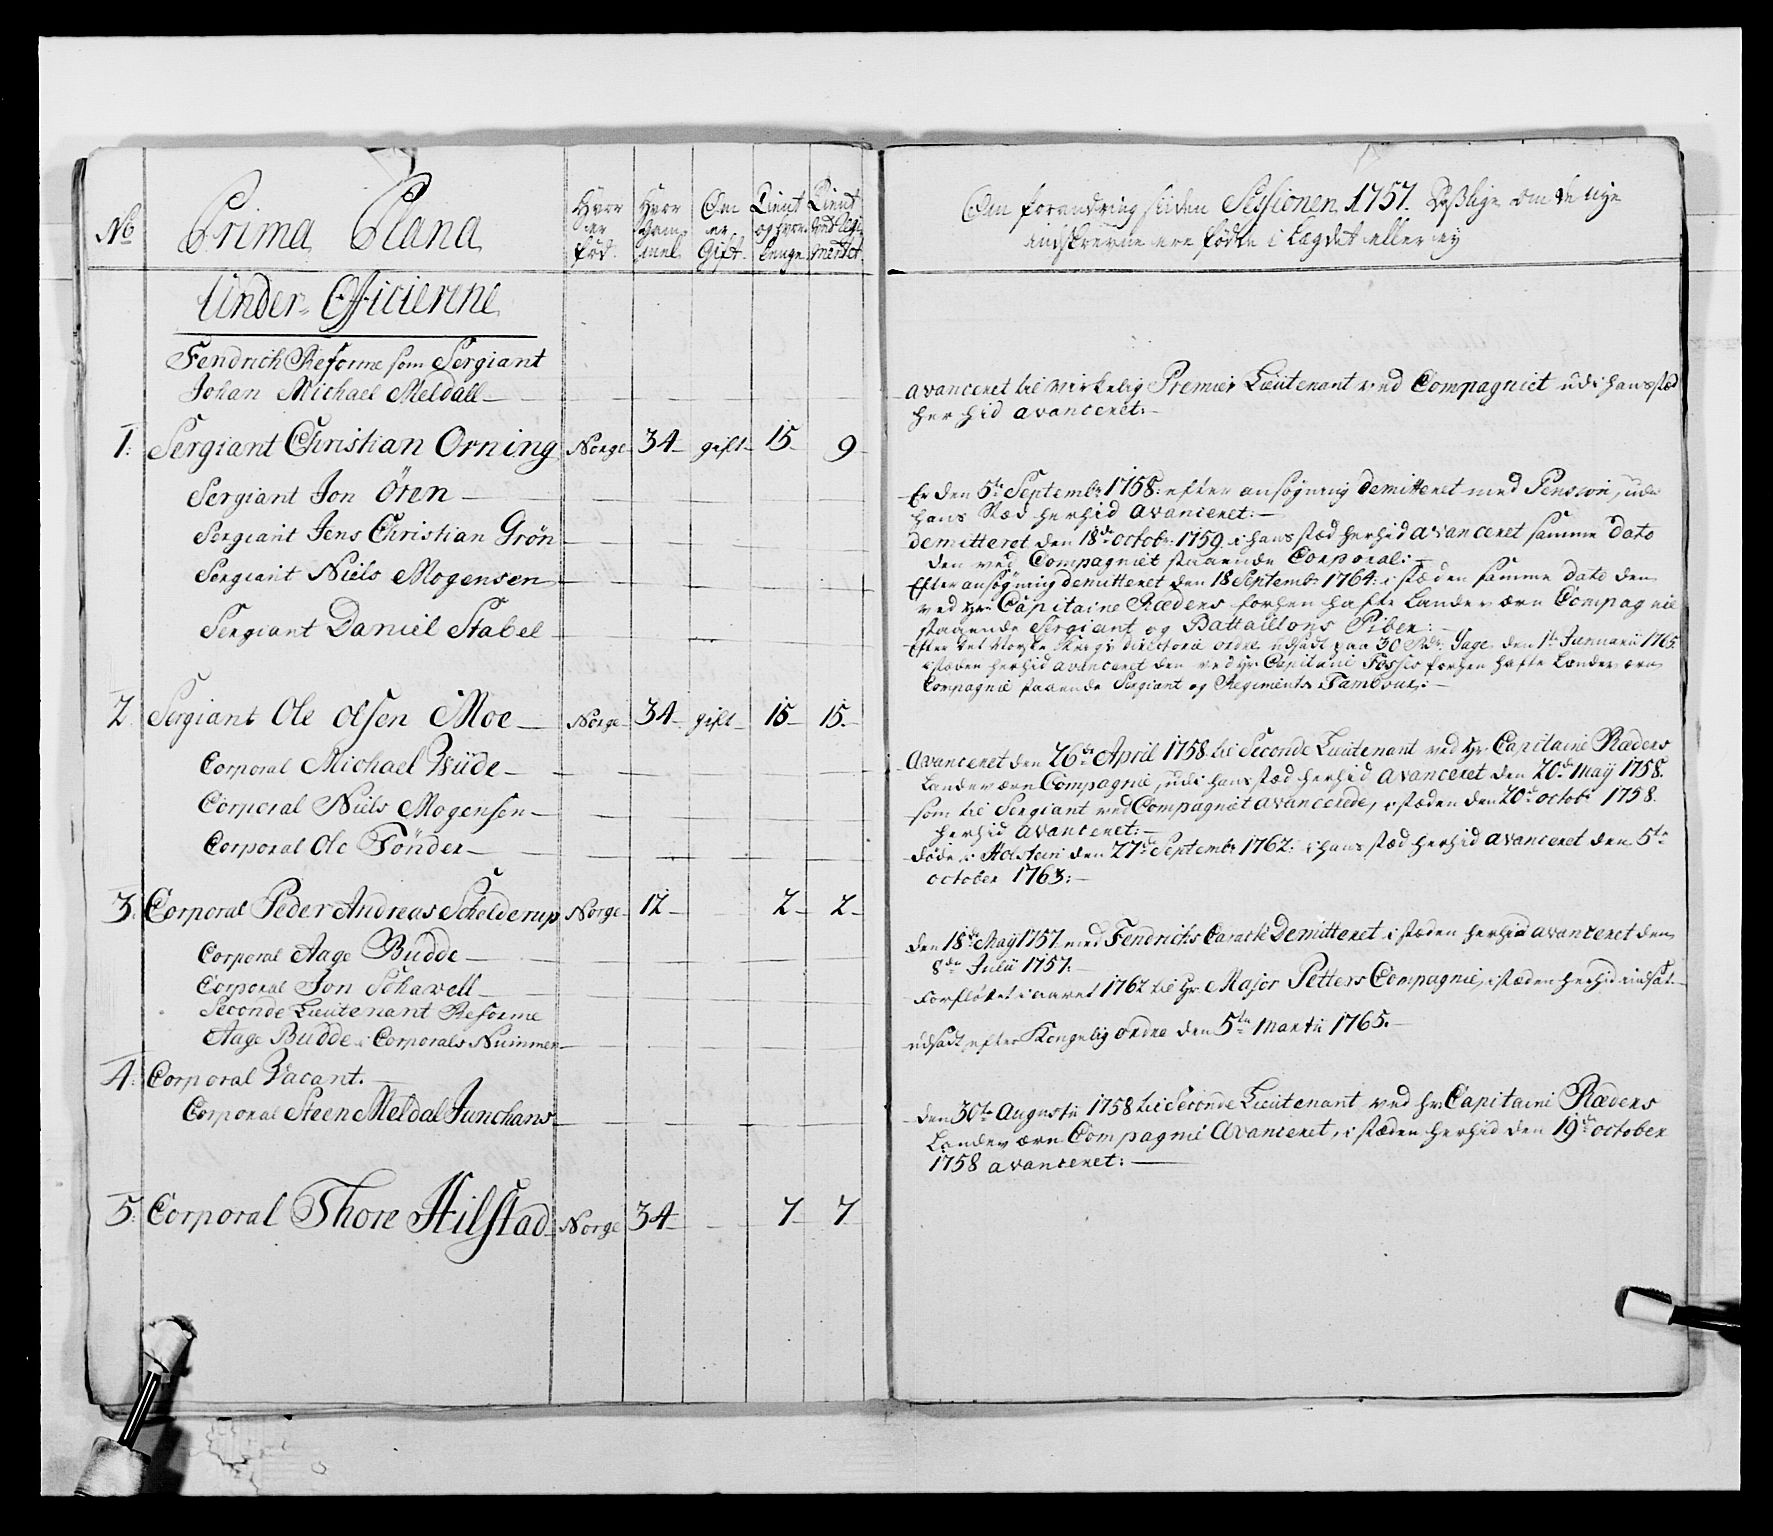 No
Prima Plana
Hvor er fød.
Hvor Gam mel
Om er Gift.
Tient og hvor Lenge
Tient ved Regi mentet
Under-Officierne
Fendrich Reforme som Sergiant
Johan Michael Meldall
1: Sergiant Christian Orning Norge 34 gift 15 9
Sergiant Jon Ören
Sergiant Jens Christian Grön
Sergiant Niels Mogensen
Sergiant Daniel Stabel
2. Sergiant Ole Olsen Moe Norge 34 gift 15 15.
Corporal Michael Wüde
Corporal Niels Mogensen
Corporal Ole Tönder
3. Corporal Peder Andreas Schelderup Norge 12 2 2
Corporal Aage Budde
Corporal Jon Schavell
Seconde Lieutenant Reforme
Aage Budde i Corporals Nummer
4: Corporal Vacant.
Corporal Steen Meldal Junchans
5: Corporal Thore Hilstad Norge 34 7 7
Om forandring siden Sessionen 1757. Deslige om de nye
indskrevne ere fødte i Lægdet eller ey
avanceret til virkelig Premier Lieutenant ved Compagniet udi hans stæd
her hid avanceret:
Er den 5te Septembr 1758: efter ansøgning demitteret med Pension, udi
hans stæd herhid avanceret:
demitteret den 18de octobr: 1759 i hans stæd herhid avanceret samme dato
den ved Compagniet staaende Corporal:
Efter ansøgning demitteret den 18 Septembr 1764: i stæden samme dato den
ved Hr: Capitaine Ræders forhen hafte Landeværn Compagnie
staaende Sergiant og Battaillons Piber:
Efter det Norske Krigs Directorii ordre udsadt paa 30 Rdr: Gage den 1te Januarii 1765.
i stæden herhid avanceret den ved Hr: Capitaine Fossis forhen hafte Landeværn
Compagnie staaende Sergiant og Regiments Tambour:
Avanceret den 26de April 1758 til Seconde Lieutenant ved Hr: Capitaine Ræders
Landeværn Compagnie, udi hans stæd herhid avanceret den 20de May 1758.
som til Sergiant ved Compagniet avancerede, i stæden den 20de octobr 1758.
herhid avanceret:
døde i Holsteen den 27de Septembr 1762: i hans stæd herhid avanceret den 5te
october 1763:
Den 18de May 1757 med Fendrichs Caracté Demitteret i stæden herhid avanceret den
8de Julii 1757:
Forfløttet i aaret 1762 til Hr: Major Petters Compagnie, i stæden herhid indsat
udsadt efter Kongelig ordre den 5te Martii 1765.
Den 30te Augustii 1758 til Seconde Lieutenant ved hr: Capitaine Ræders
Landeværn Compagnie Avanceret, i stæden herhid den 19de october
1758 avanceret: